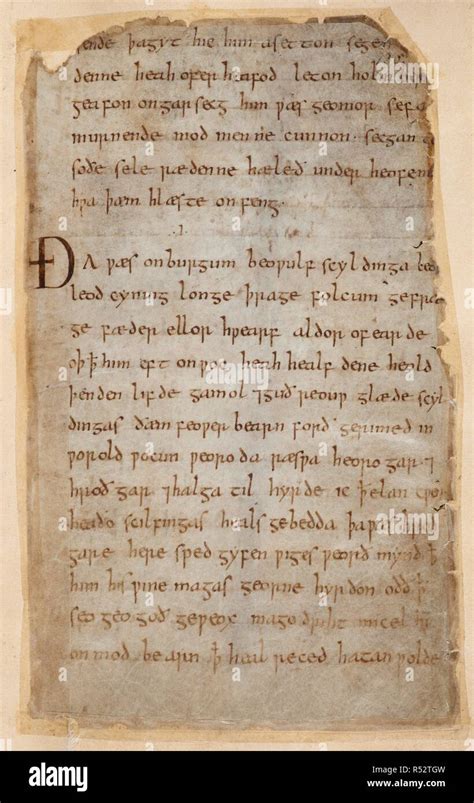 ænde þagẏt hie him asetton segen
denne heah ofer heafod leton hol
geafon ongarsecg him ƿæs geomor sefa
murnende mod men ne cunnon secgan
soðe sele rædenne hæleð under heofen
hƿa þæm hlæste onfeng.
.I.
ÐA ƿæs onburgum beoƿulf scẏldinga
leod cẏning longe þrage folcum gefræ
ge fæder ellor hƿearf aldor ofearde
oþ ꝥ him eft onƿoc heah healfdene heold
þenden lifde gamol ⁊guð reouƿ glæde scẏl
dingas ðæm feoƿer bearn forð gerimed in
ƿorold ƿocun ƿeoroda ræsƿa heorogar ⁊
hroðgar ⁊halga til hẏrde ic ꝥ elan cƿen
heaðo scilfingas heals gebedda þa ƿæs
gare here sped gẏfen ƿiges ƿeorð mẏnd ꝥ
him his ƿine magas georne hẏrdon oðð ꝥ
seo geogoð geƿeox mago driht micel him
on mod bearn ꝥ heal reced hatan ƿolde
alamy
Image ID: R52TGW
www.alamy.com